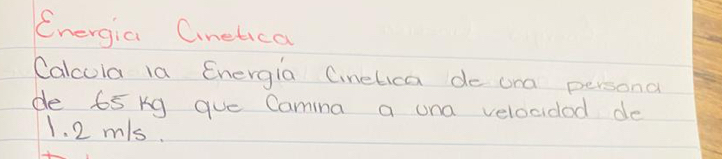 Energía Cinetica
Calcula la Energía Cinetica de una persona
de 65 kg que Camina a una velocidad de
1.2 m/s.